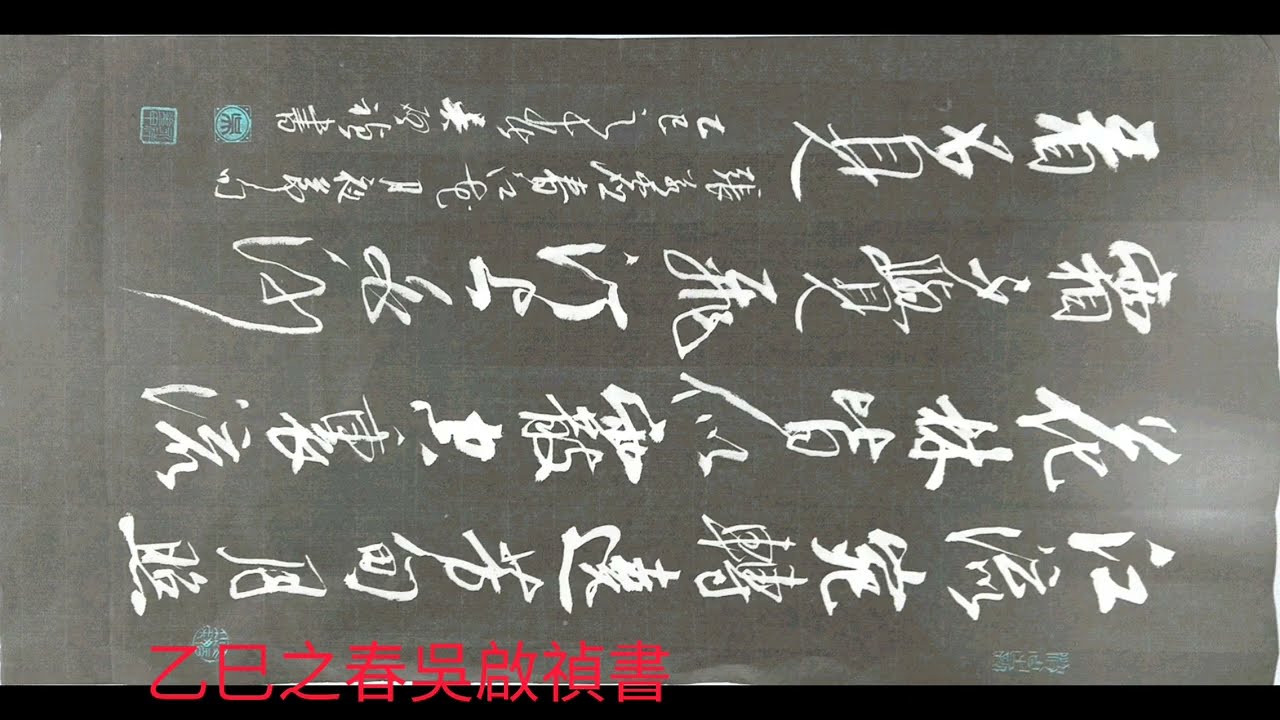 江流宛轉遶芳甸月照
花林皆似霰空裏流
霜不覺飛汀上白沙
看不見
張若虛春江花月夜句
乙巳之春吳啟禎書
吳
乙巳之春吳啟禎書